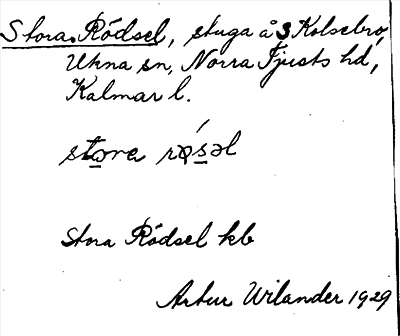 Stora Rödsel, stuga å S Kolsebro,
Ukna sn, Norra Tjusts hd,
Kalmar l.
Stora Rödsel kb
Artur Wilander 1929